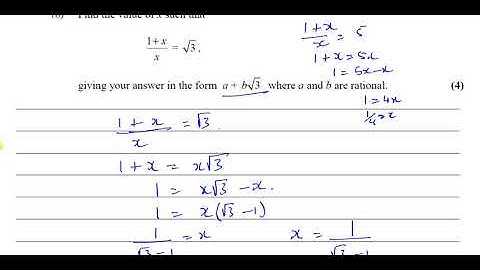 Find the value of x such that
(1+x)/x = √3,
giving your answer in the form a + b√3 where a and b are rational. (4)
(1+x)/x = 5
1+x = 5x
1 = 5x-x
1 = 4x
1/4 = x
(1 + x)/x = √3
1 + x = x√3
1 = x√3 - x.
1 = x(√3 - 1)
1/(√3-1) = x
x = 1/(√3-1)